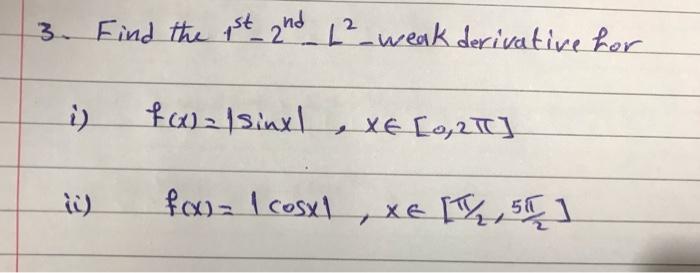 3. Find the 1st - 2nd - L² - weak derivative for
i) f(x) = |sinx| , x ∈ [0,2π]
ii) f(x) = |cosx| , x ∈ [π/2, 5π/2]